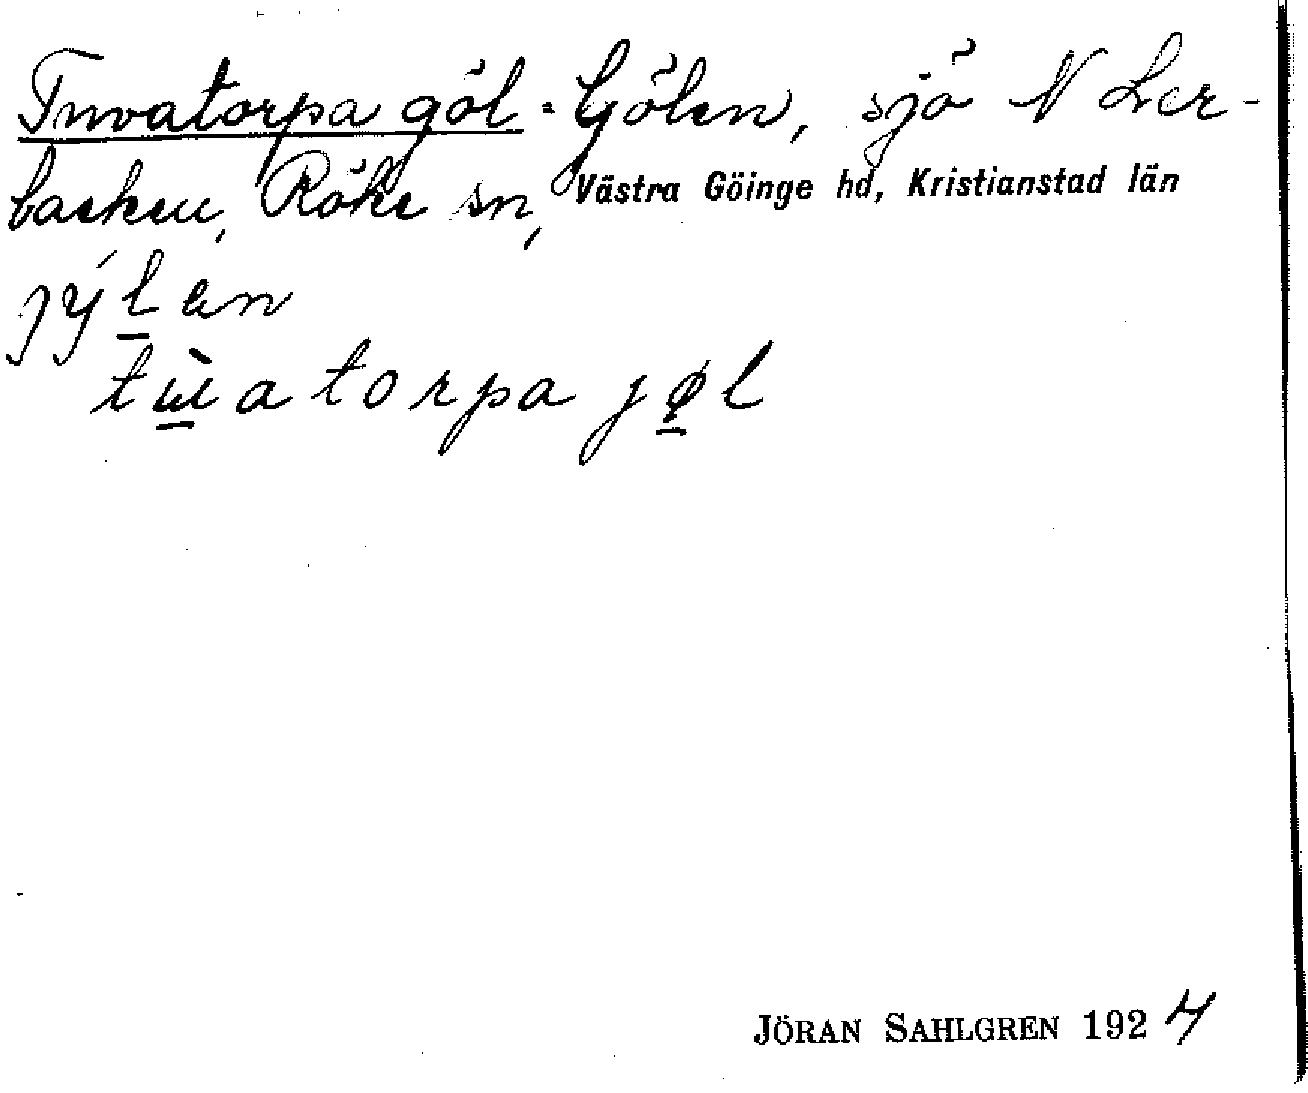 Tuvatorpa göl = Gölen, sjö N Ler-
backen, Röke sn, Västra Göinge hd, Kristianstad län
jýl̲en
tɯ̲̀atorpa jø̲l
JÖRAN SAHLGREN 1924